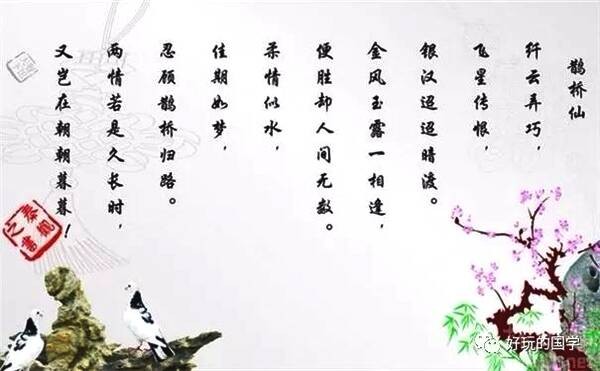 鹊桥仙
纤云弄巧，
飞星传恨，
银汉迢迢暗渡。
金风玉露一相逢，
便胜却人间无数。
柔情似水，
佳期如梦，
忍顾鹊桥归路。
两情若是久长时，
又岂在朝朝暮暮！
秦观
之书
好玩的国学